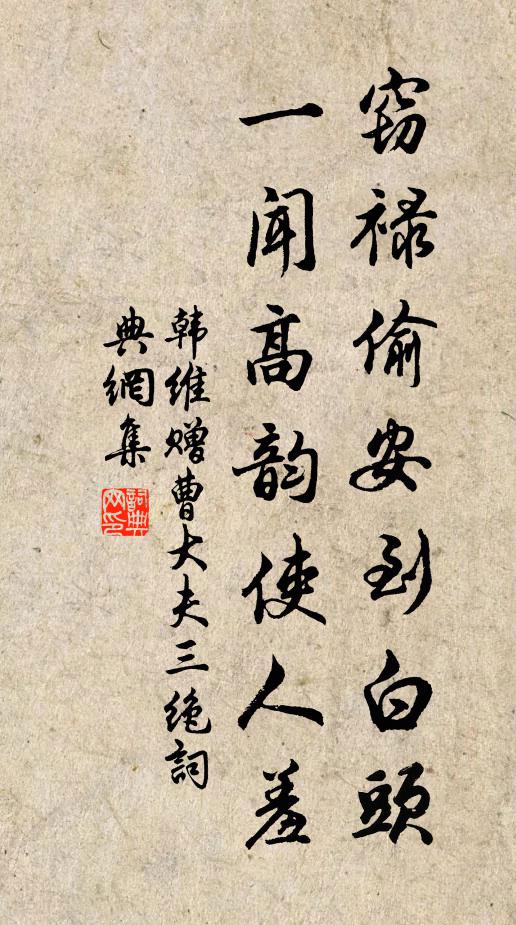 窃禄偷安到白頭
一闻高韵使人羞
韩维赠曹大夫三绝詞
典網集
詞典网印